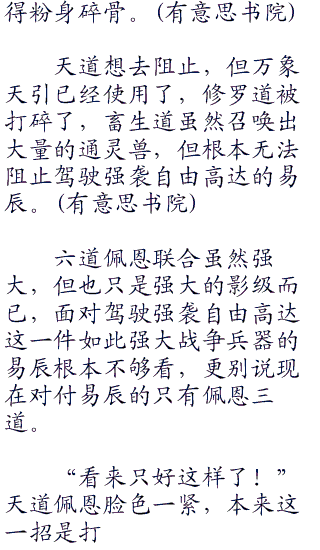 得粉身碎骨。(有意思书院)
天道想去阻止，但万象
天引已经使用了，修罗道被
打碎了，畜生道虽然召唤出
大量的通灵兽，但根本无法
阻止驾驶强袭自由高达的易
辰。(有意思书院)
六道佩恩联合虽然强
大，但也只是强大的影级而
已，面对驾驶强袭自由高达
这一件如此强大战争兵器的
易辰根本不够看，更别说现
在对付易辰的只有佩恩三
道。
“看来只好这样了！”
天道佩恩脸色一紧，本来这
一招是打